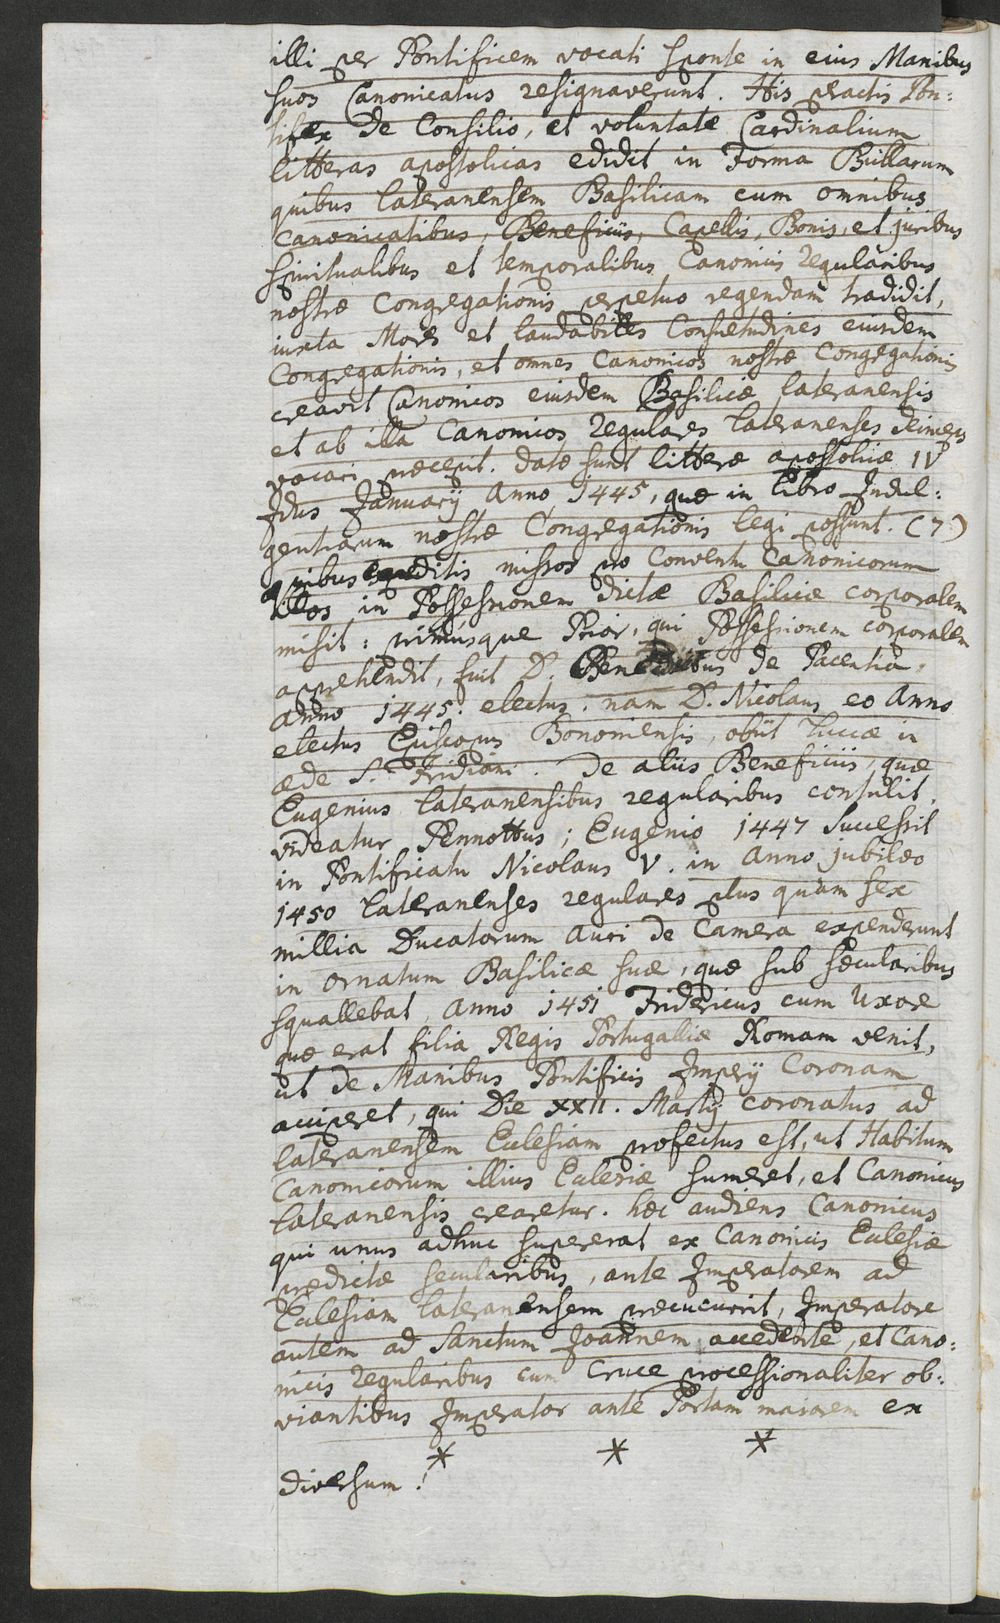 illi per Pontificem vocati sponte in eius Manibus
suos Canonicatus resignaverunt. His peractis Pon:
tifex de Consilio, et voluntate Cardinalium
litteras apostolicas edidit in Forma Bullarum
quibus lateranensem Basilicam cum omnibus
canonicatibus, Beneficiis, Capellis, Bonis, et juribus
spiritualibus et temporalibus Canonicis Regularibus
nostræ Congregationis perpetuo regendam tradidit,
iuxta Mores et laudabiles Consuetudines eiusdem
Congregationis, et omnes Canonicos nostræ Congregationis
creavit Canonicos eiusdem Basilicæ lateranensis
et ab illa Canonicos Regulares lateranenses deinceps
vocari præcepit. datæ sunt litteræ apostolicæ IV
Idus Januarij anno 1445, quæ in libro Indul:
gentiarum nostræ Congregationis legi possunt. (7)
quibus expeditis missos pro Conventu Canonicorum
illos in Possessionem dictæ Basilicæ corporalem
misit: primusque Prior, qui Possessionem corporalem
apprehendit, fuit D. Benedictus de Placentia,
anno 1445. electus. nam D. Nicolaus eo anno
electus Episcopus Bononiensis, obiit Luccæ in
æde S. Fridiani. De aliis Beneficiis, quæ
Eugenius lateranensibus regularibus contulit,
videatur Pennottus; Eugenio 1447 successit
in Pontificatu Nicolaus V. in anno jubilæo
1450 lateranenses regulares plus quam sex
millia Ducatorum auri de Camera expenderunt
in ornatum Basilicæ suæ, quæ sub sæcularibus
squallebat, anno 1451 Fridericus cum Uxore
quæ erat filia Regis Portugalliæ Romam venit,
ut de Manibus Pontificis Imperij Coronam
acciperet, qui Die XXII. Martij coronatus ad
lateranensem Ecclesiam profectus est, ut Habitum
Canonicorum illius Ecclesiæ sumeret, et Canonicus
lateranensis crearetur. hæc audiens Canonicus
qui unus adhuc supererat ex Canonicis Ecclesiæ
prædictæ secularibus, ante Imperatorem ad
Ecclesiam lateranensem præcucurrit, Imperatore
autem ad Sanctum Joannem accedente, et Cano:
nicis Regularibus cum Cruce processionaliter ob:
viantibus Imperator ante Portam maiorem ex
* * *
diversum!